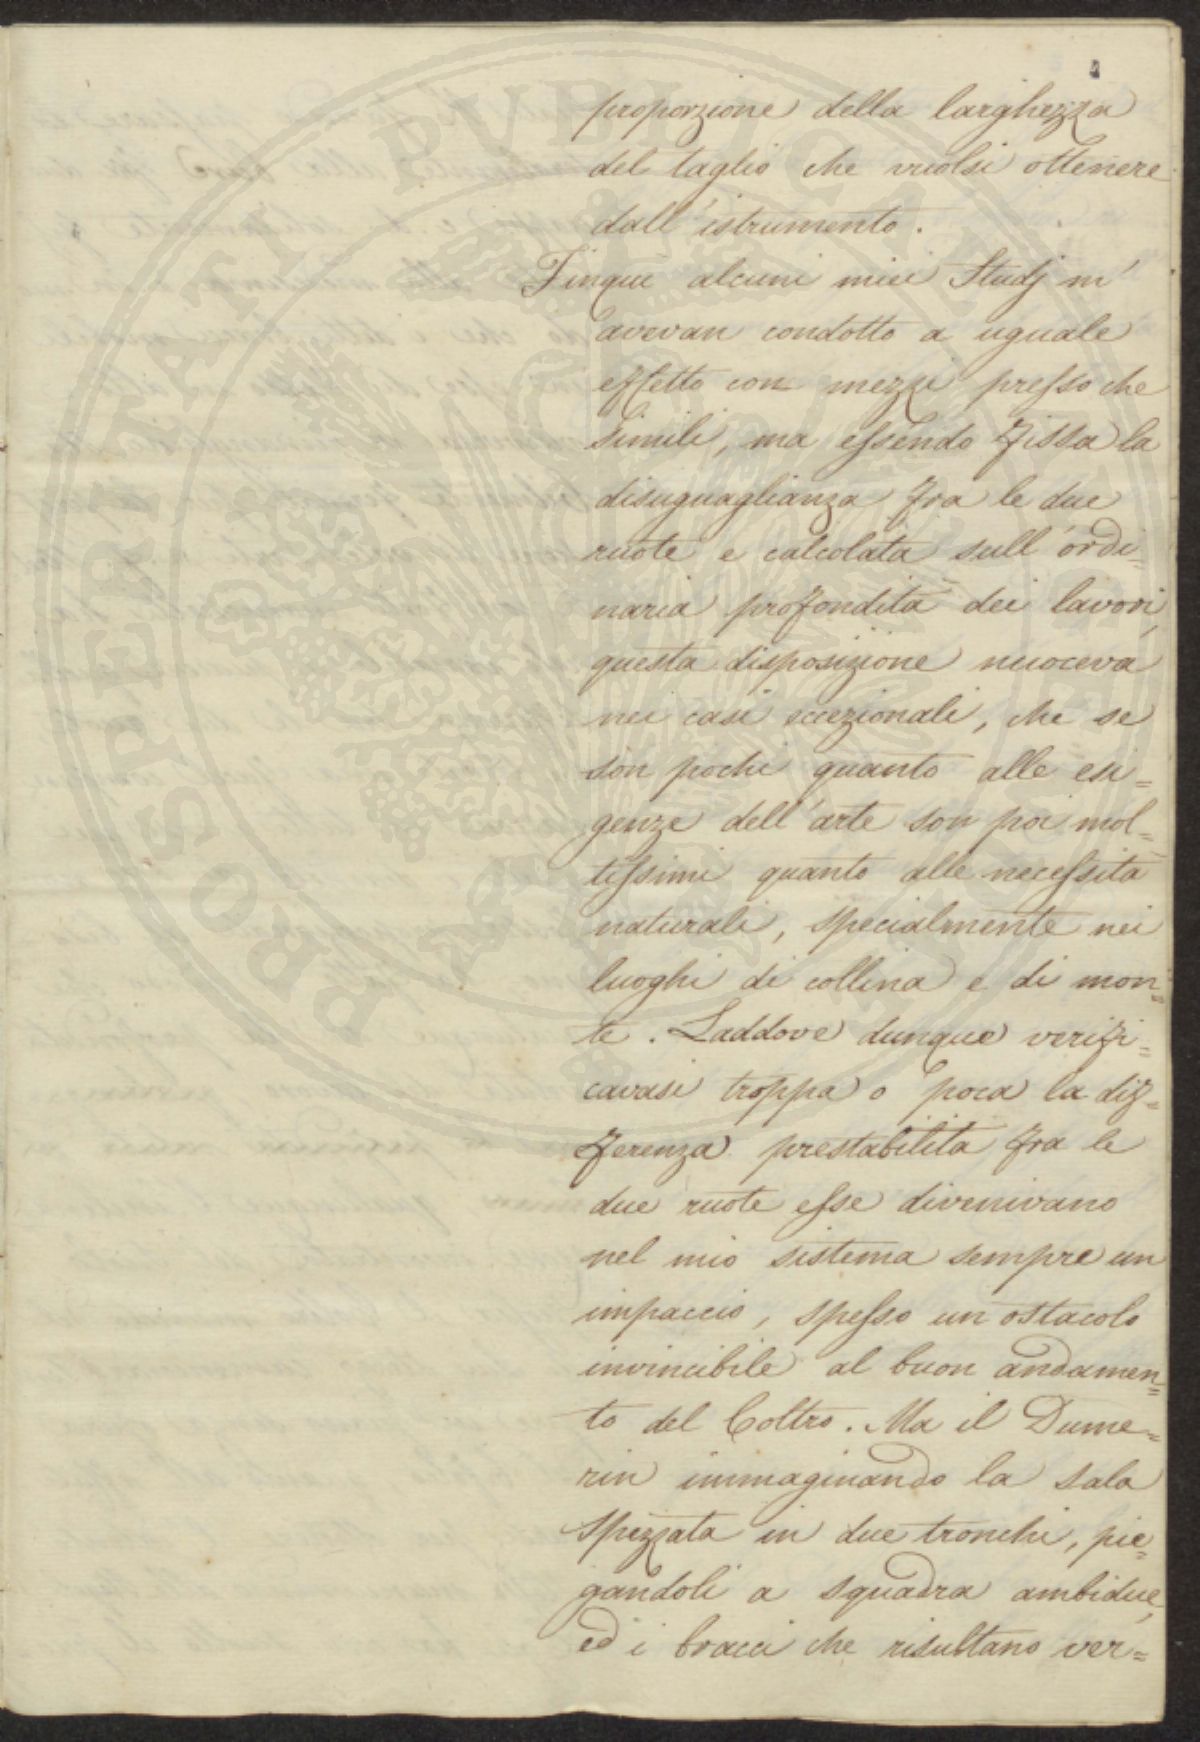 proporzione della larghezza
del taglio che vuolsi ottenere
dall'istrumento.
Finqui alcuni miei Studj m'
avevan condotto a uguale
effetto con mezzi presso che
simili, ma essendo fissa la
disuguaglianza fra le due
ruote e calcolata sull'ordi=
naria profondità dei lavori,
questa disposizione nuoceva
nei casi eccezionali, che se
son pochi quanto alle esi=
genze dell'arte son poi mol=
tissimi quanto alle necessità
naturali, specialmente nei
luoghi di collina e di mon=
te. Laddove dunque verifi=
cavasi troppa o poca la dif=
ferenza prestabilita fra le
due ruote esse divenivano
nel mio sistema sempre un
impaccio, spesso un ostacolo
invincibile al buon andamen=
to del Coltro. Ma il Dume=
rin immaginando la sala
spezzata in due tronchi, pie=
gandoli a squadra ambidue,
ed i bracci che risultano ver=
PROSPERITATI PVBLICAE